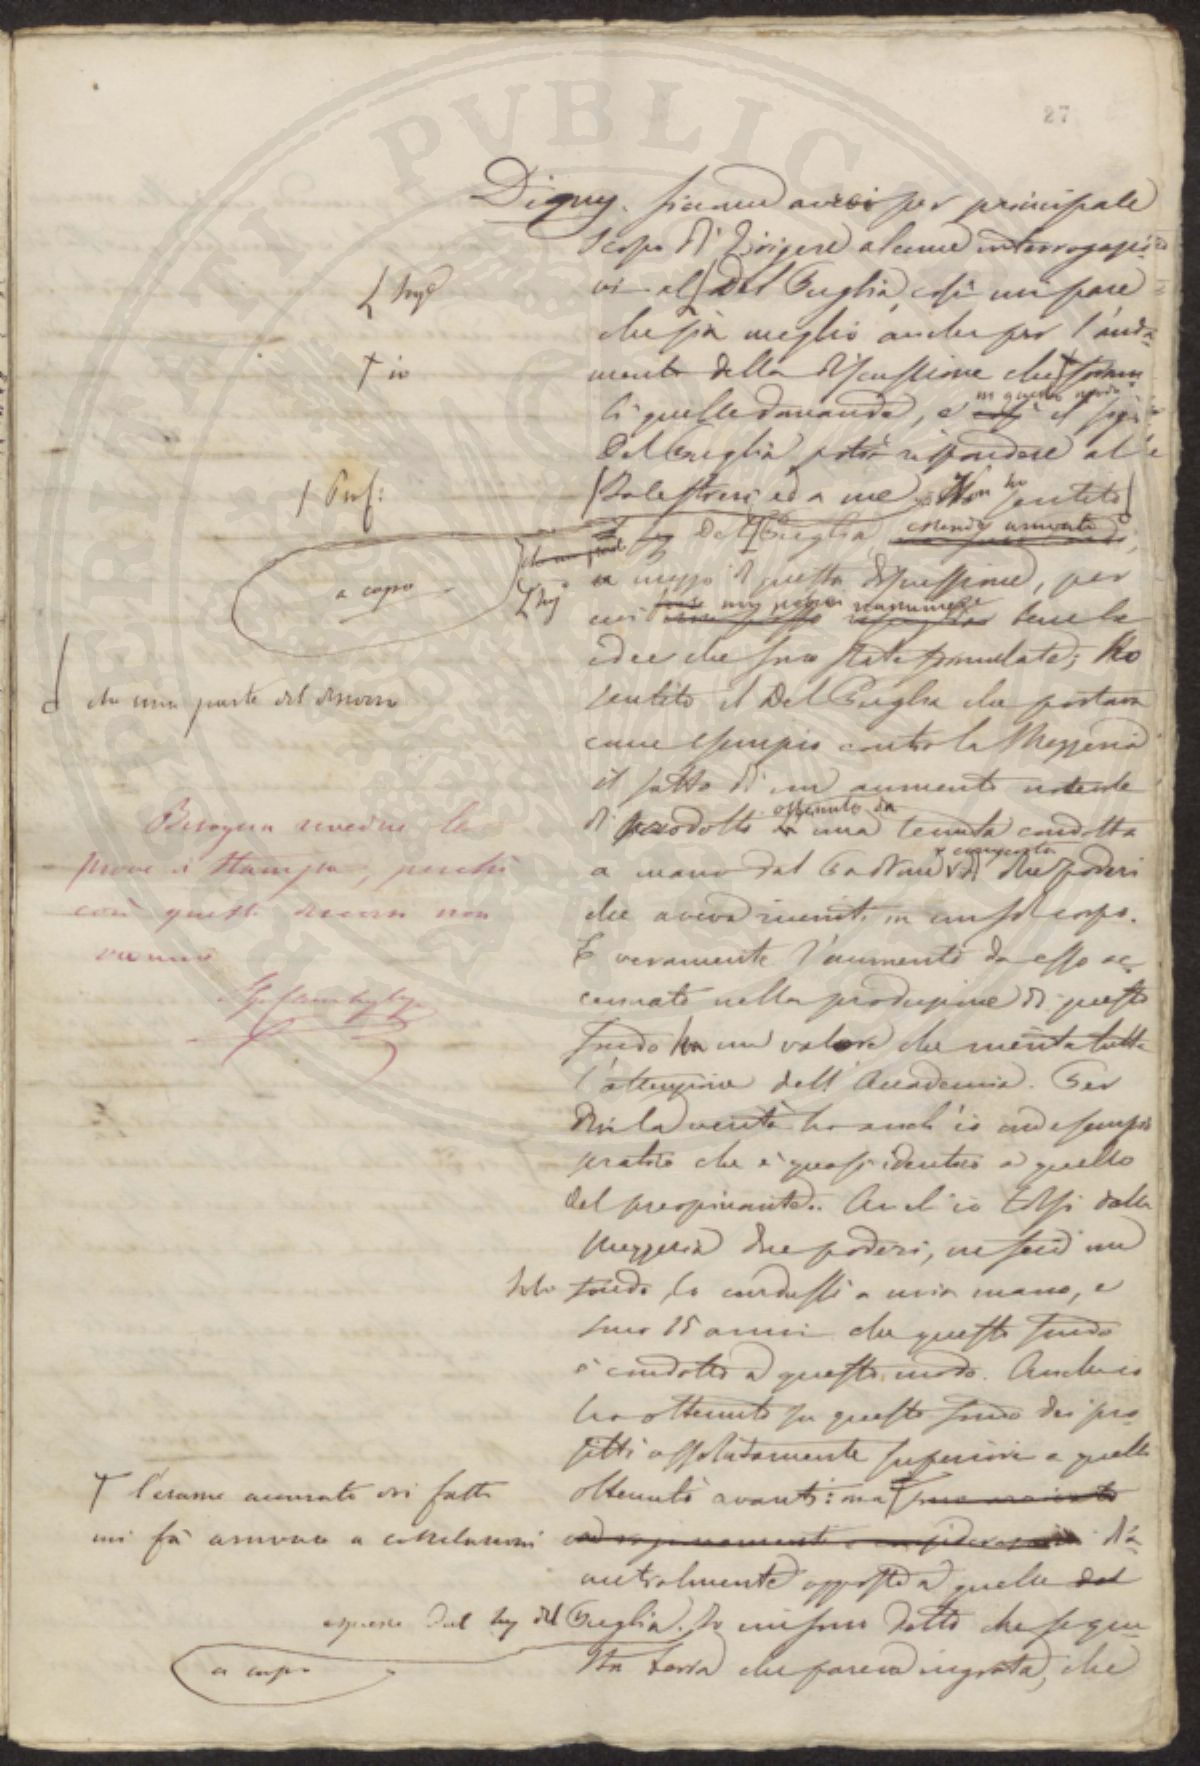 27
Digny. Siccome aveva per principale
scopo di dirigere alcune interrogazio
ni al Del Puglia, così mi pare
[ Sigr
che sia meglio anche per l'anda-
† io
mento della discussione che
in questo modo
li quelle domande, e così il Sigr
Del Puglia potrà rispondere al
/ Prof:
Balestreri ed a me. Non ho sentito
il Del Puglia, essendo arrivato
a capo
[ Sigr
a mezzo di questa discussione, per
cui non posso bene le
idee che sono state formulate; Ho
che una parte del discorso
sentito il Del Puglia che portava
come esempio contro la Mezzeria
il fatto di un aumento notevole
ottenuto da
di prodotti in una tenuta condotta
Bisogna rivedere le
composta
a mano dal di due poderi
prove di Stampa, perchè
così questi discorsi non
che aveva riuniti in un sol corpo.
E veramente l'aumento da esso ac-
cennato nella produzione di questo
fondo ha un valore che merita tutta
l'attenzione dell'Accademia. Per
dir la verità ho anch'io un esempio
pratico che è quasi identico a quello
del preopinante. Anch'io tolsi dalla
Mezzeria due poderi, ne feci un
solo fondo, lo condussi a mia mano, e
sono 15 anni che questo fondo
è condotto a questo modo. Anch'io
ho ottenuto su questo fondo dei pro-
fitti assolutamente superiori a quelli
† l'esame accurato dei fatti
ottenuti avanti: ma sono arrivato
mi fà arrivare a conclusioni
dia-
metralmente opposte a quelle del
espresse dal Sig del Puglia. Io mi sono detto che se que-
a capo
sta terra che pareva ingrata, che